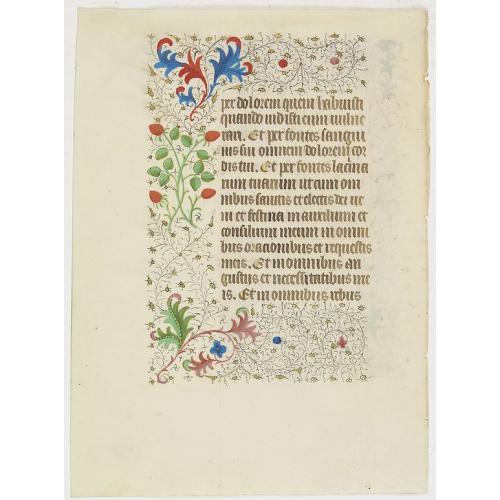 per dolorem quem habuisti
quando vidisti eum vulne
rari. Et per fontes sangui
nis sui omnem dolorem cor
dis tui. Et per fontes lacrima
rum tuarum ut cum om
nibus sanctis et electis dei ve
ni et festina in auxilium et
consilium meum in omni
bus orationibus et requestis
meis. Et in omnibus an
gustiis et necessitatibus me
is. Et in omnibus rebus